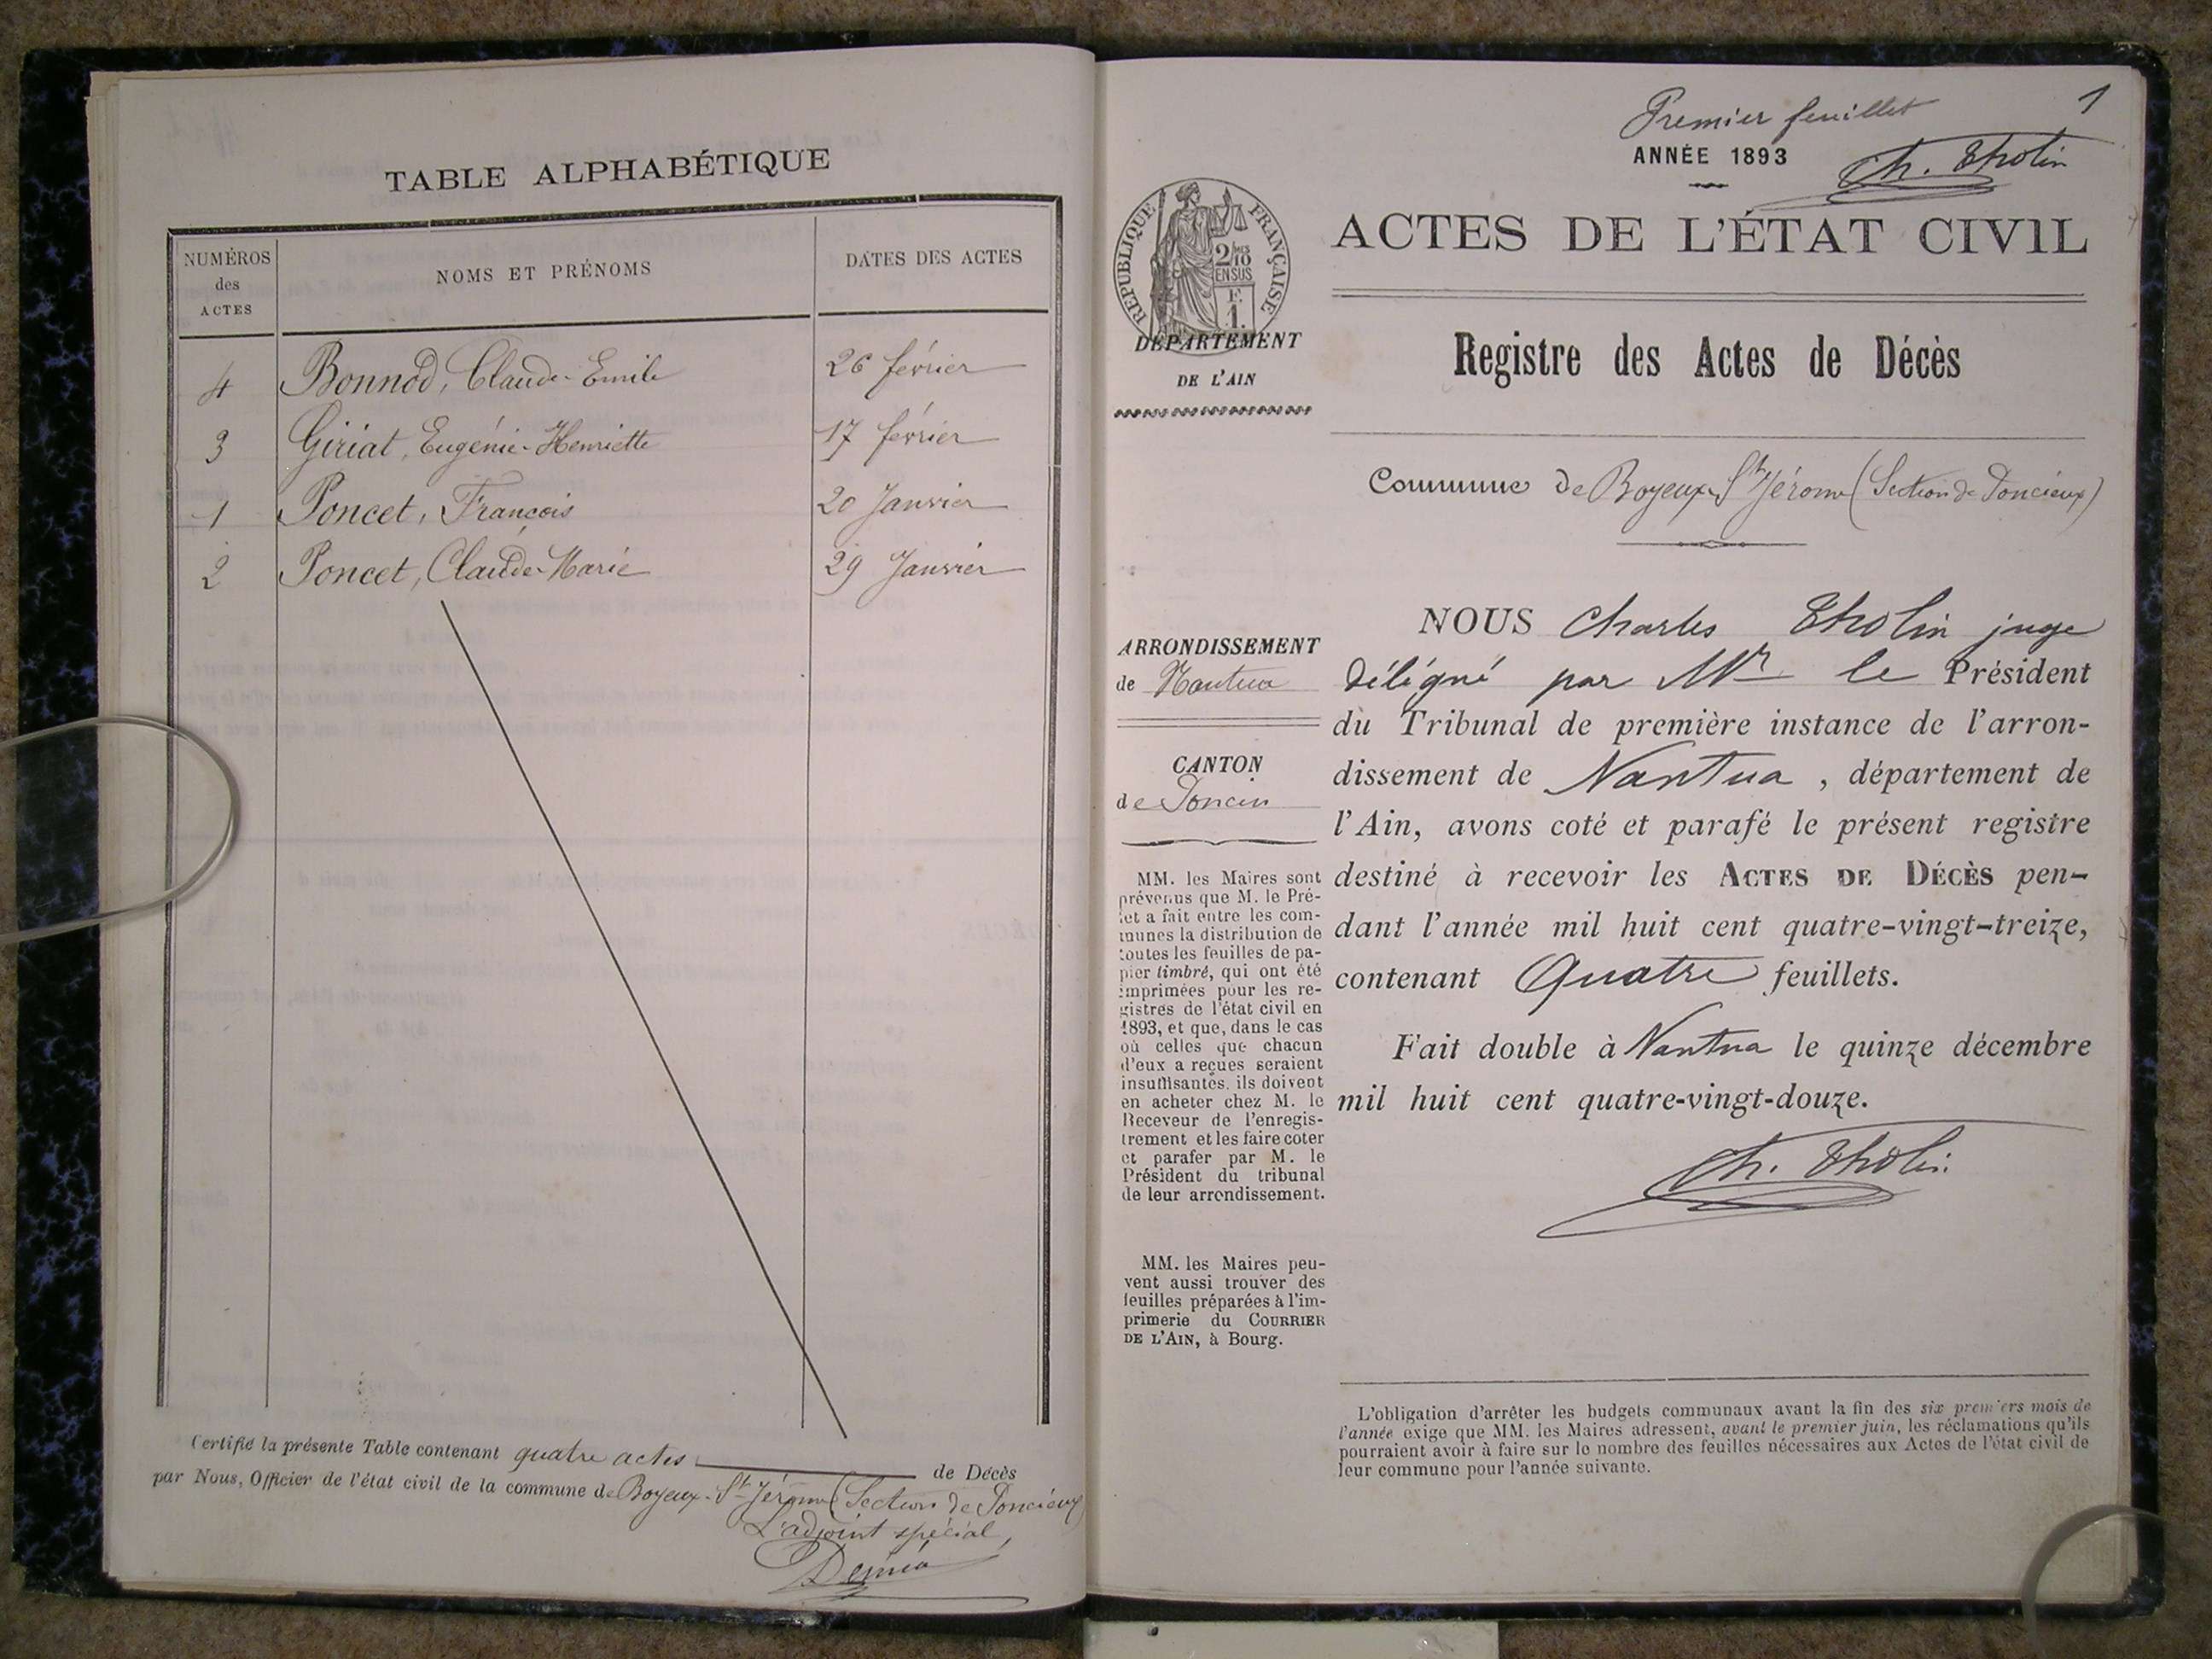 TABLE ALPHABÉTIQUE
NUMÉROS des ACTES
NOMS ET PRÉNOMS
DATES DES ACTES
4 Bonnod, Claude-Emile 26 février
3 Giriat, Eugénie-Henriette 17 février
1 Poncet, François 20 Janvier
2 Poncet, Claude-Marie 29 Janvier
Certifié la présente Table contenant quatre actes de Décès
par Nous, Officier de l'état civil de la commune de Boyeux-St Jérome (Section de Poncieux)
L'adjoint spécial,
1
Premier feuillet
ANNÉE 1893
Ch. Tholin
RÉPUBLIQUE FRANÇAISE
2/10
EN SUS
F.
1.
DÉPARTEMENT
DE L'AIN
ACTES DE L'ÉTAT CIVIL
Registre des Actes de Décès
Commune de Boyeux-St Jérome (Section de Poncieux)
ARRONDISSEMENT
de Nantua
CANTON
de Poncin
MM. les Maires sont
prévenus que M. le Pré-
fet a fait entre les com-
munes la distribution de
toutes les feuilles de pa-
pier timbré, qui ont été
imprimées pour les re-
gistres de l'état civil en
1893, et que, dans le cas
où celles que chacun
d'eux a reçues seraient
insuffisantes, ils doivent
en acheter chez M. le
Receveur de l'enregis-
trement et les faire coter
et parafer par M. le
Président du tribunal
de leur arrondissement.
MM. les Maires peu-
vent aussi trouver des
feuilles préparées à l'im-
primerie du COURRIER
DE L'AIN, à Bourg.
NOUS Charles Tholin juge
délégué par Mr le Président
du Tribunal de première instance de l'arron-
dissement de Nantua, département de
l'Ain, avons coté et parafé le présent registre
destiné à recevoir les ACTES DE DÉCÈS pen-
dant l'année mil huit cent quatre-vingt-treize,
contenant Quatre feuillets.
Fait double à Nantua le quinze décembre
mil huit cent quatre-vingt-douze.
Ch. Tholin
L'obligation d'arrêter les budgets communaux avant la fin des six premiers mois de
l'année exige que MM. les Maires adressent, avant le premier juin, les réclamations qu'ils
pourraient avoir à faire sur le nombre des feuilles nécessaires aux Actes de l'état civil de
leur commune pour l'année suivante.